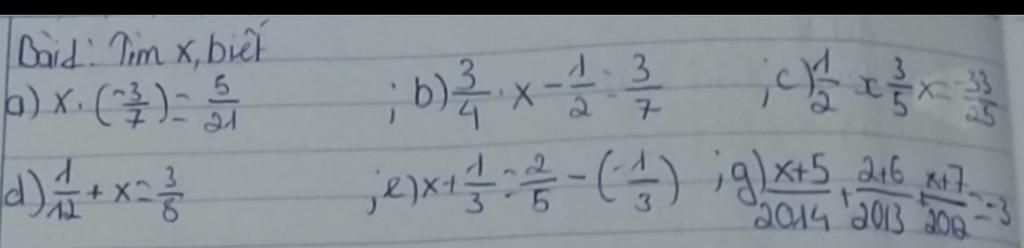 Bàid: Tìm x, biết
a) x . (-3/7) = 5/21 ; b) 3/4 . x - 1/2 = 3/7 ; c) 1/2 x 3/5 x = -33/25
d) 1/12 + x = 3/8 ; e) x + 1/3 = 2/5 - (-1/3) ; g) x+5/2014 + 2+6/2013 + x+7/2012 = -3